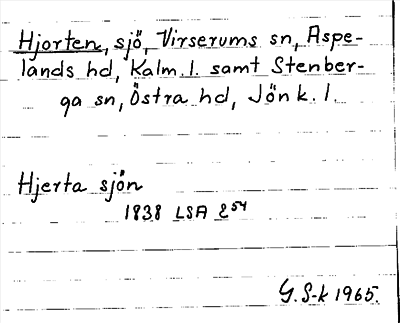 Hjorten, sjö, Virserums sn, Aspe-
lands hd, Kalm. l. samt Stenber-
ga sn, Östra hd, Jönk. l.
Hjerta sjön
1838 LSA E54
G. S-k 1965.